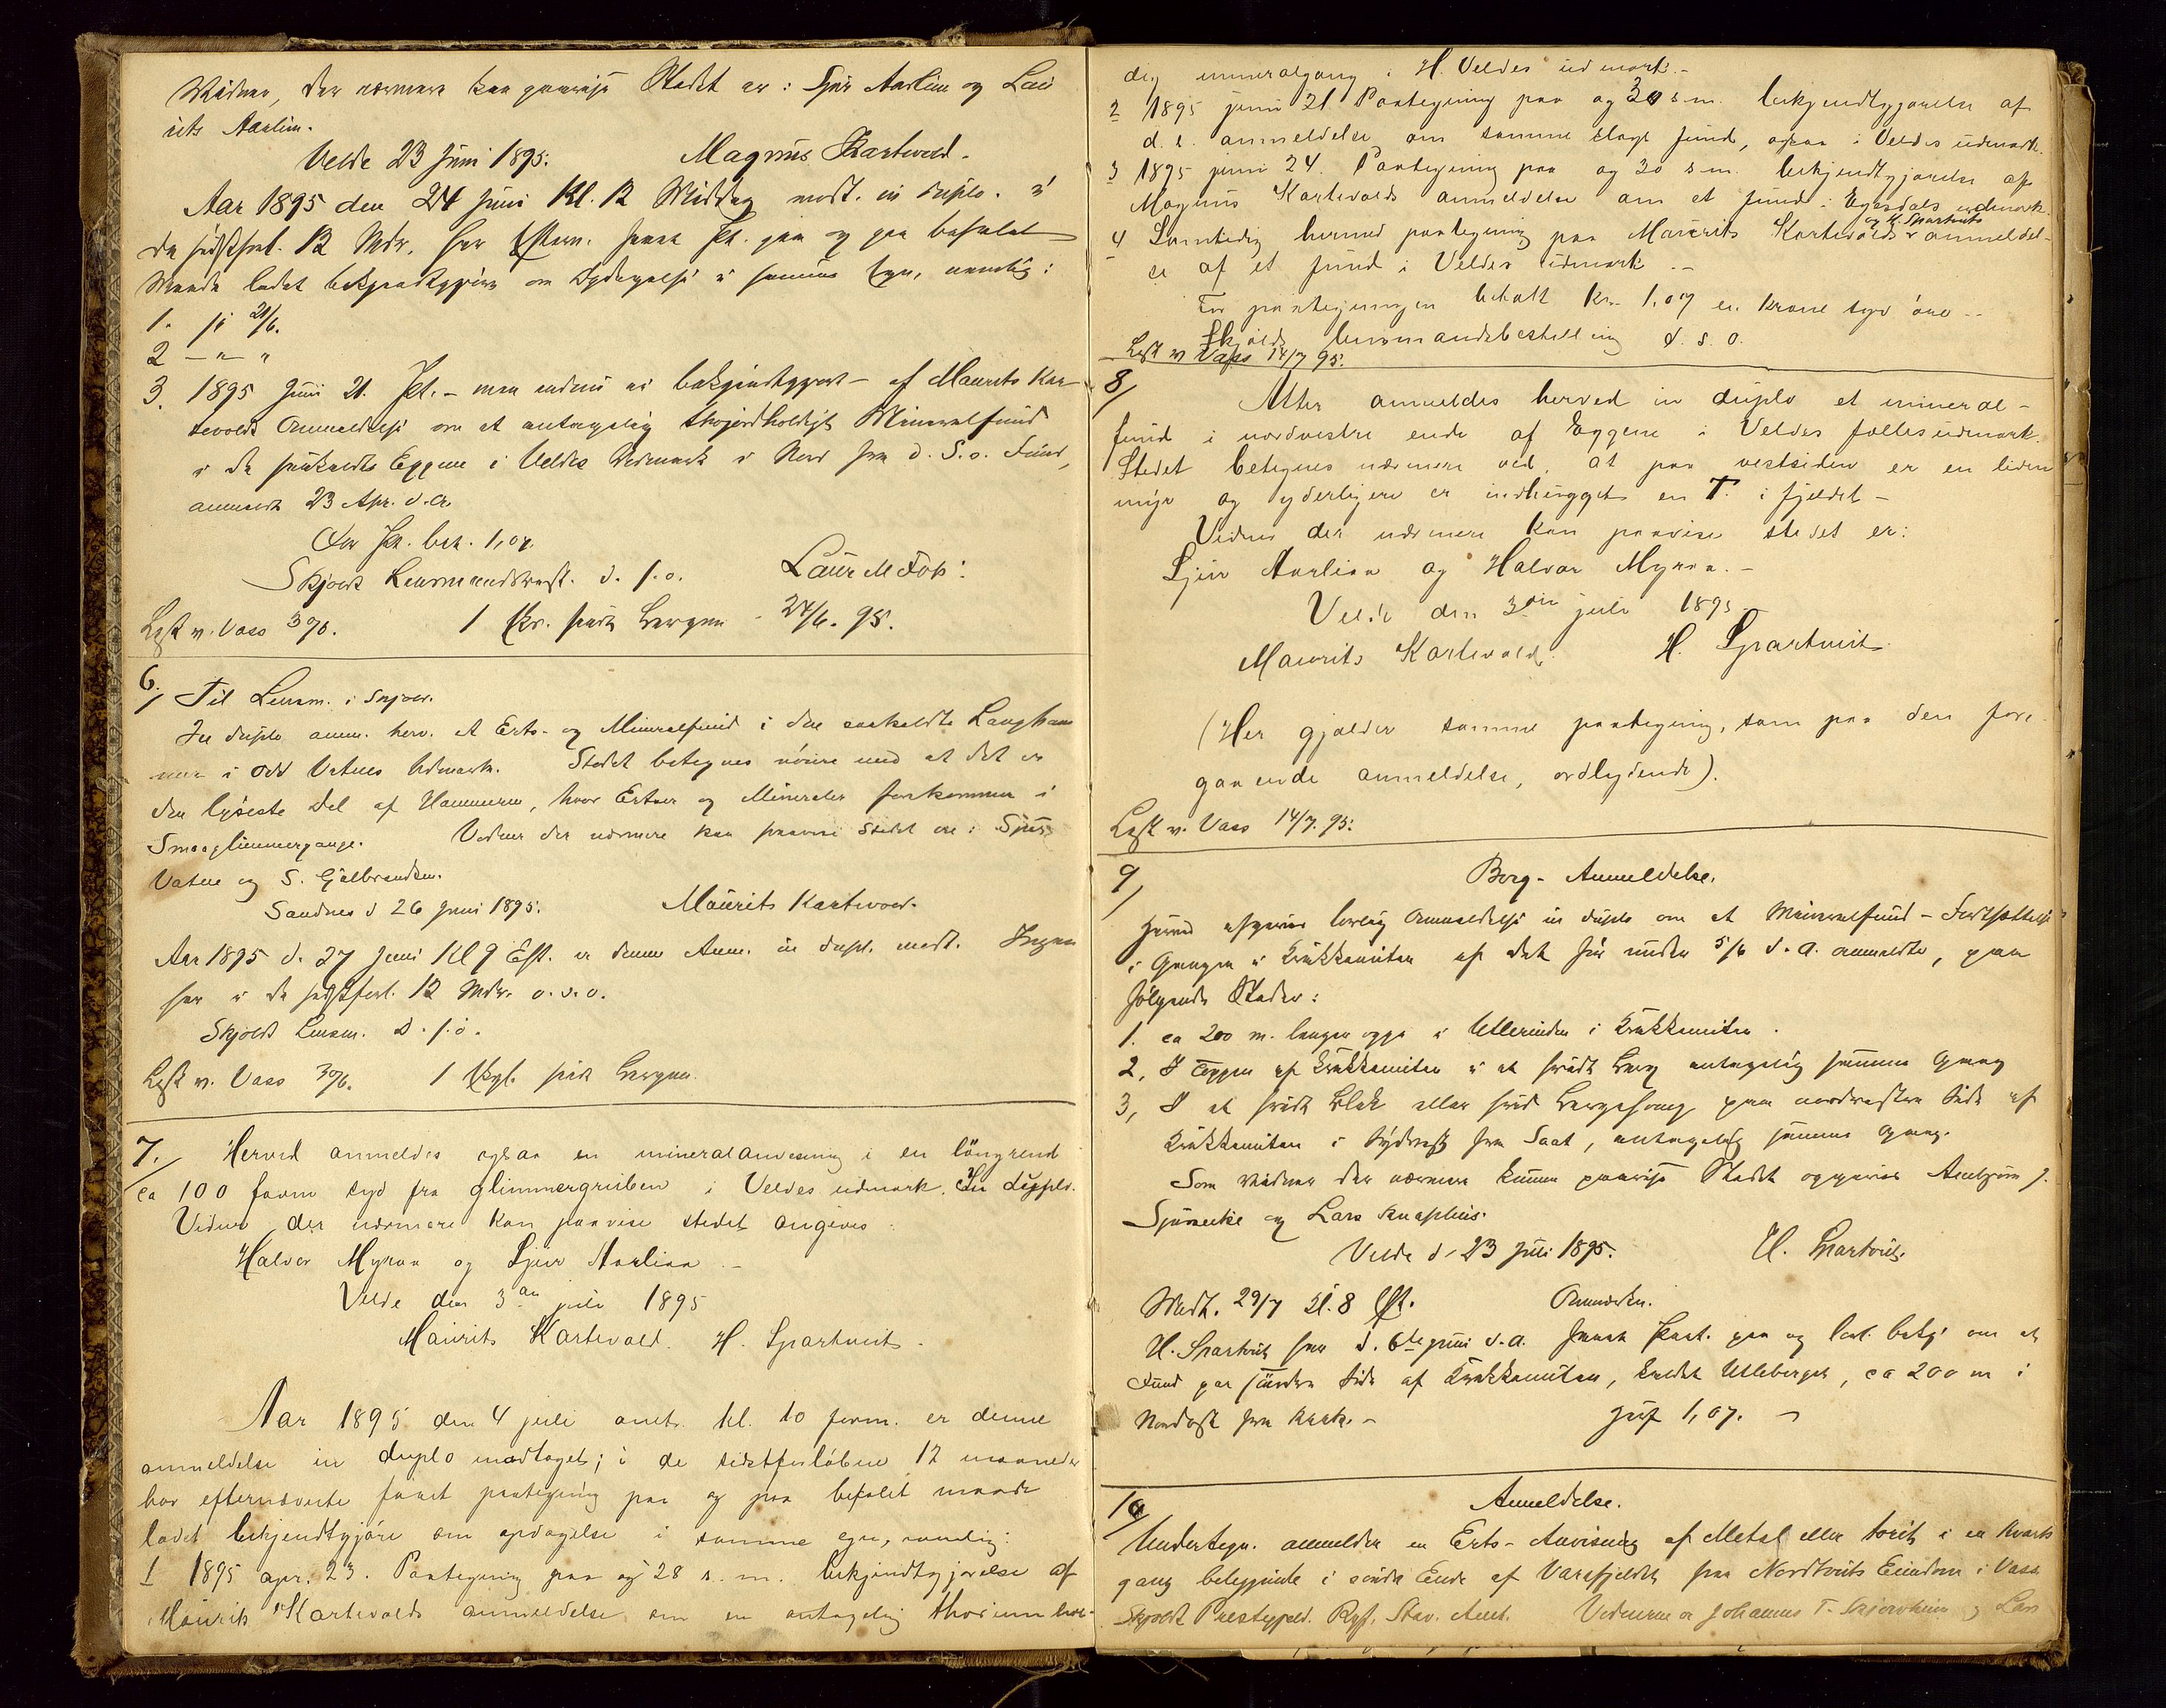 Vidner, der nærmere kan paavise Stedet er: Sjur Aarlien og Lau
rits Aarlien.
Velde 23 Juni 1895. Magnus Kartevold.
Aar 1895 den 24 Juni Kl. 12 Middag modt. in duplo. I
de sidstforl. 12 Mdr. har Eftern. faaet Pt. paa og paa befalet
Maade ladet bekjendtgjøre om Opdagelse i samme Egn, nemlig:
1. 21/6.
2 — " — "
3. 1895 Juni 21. Pt. - men endnu ei bekjendtgjort - af Maurits Kar-
tevolds Anmeldelse om et antagelig thojordholdigt Mineralfund
i de saakaldte Eggene i Veldes Udmark i Nord fra d. S. o. Fund,
anmeldt 23 Apr. d. A.
For Pt. bet. 1,07.
Skjold Lensmandsbest. d. s. o. Laur M Foss.
Læst v. Vaso 30/6. 1 Ex. sendt Bergm 24/6. 95.
6./ Til Lensm. i Skjold.
In duplo anm. herv. et Erts- og Mineralfund i den saakaldte Langham
mer i Odd Vatnes Udmark. Stedet betegnes nöiere med at det er
den lyseste Del af Hammeren, hvor Ertser og Mineraler forekommer i
Smaaglimmergange. Vidner der nærmere kan paavise Stedet er: Sjur
Vatne og S. Gulbrandsen.
Sandnes d 26 Juni 1895. Maurits Kartevold.
Aar 1895 d. 27 Juni Kl 9 Eft. er denne Anm. in dupl. modt. Ingen
har i de sidstforl. 12 Mdr. o. s. v.
Skjold Lensm. D. s. o.
Læst v. Vaso 30/6. 1 Expl. sendt Bergm.
7./ Herved anmeldes ogsaa en mineralanvisning i en löngrend
ca 100 favne syd fra glimmergruben i Veldes udmark. In duplo.
Vidner, der nærmere kan paavise stedet angives:
Halvor Myraa og Sjur Aarlien.
Velde den 3die juli 1895
Maurits Kartevold. H. Spartveit.
Aar 1895 den 4 juli ant. kl. 10 form. er denne
anmeldelse in duplo modtaget; i de sidstforløbne 12 maaneder
har efternævnte faaet paategning paa og paa befalet maade
ladet bekjendtgjöre om opdagelse i samme egn, nemlig:
1 1895 apr. 23. Paategning paa og 28 s. m. bekjendtgjørelse af
Maurits Kartevolds anmeldelse om en antagelig thoriumhol-
dig mineralgang i H. Veldes udmark.-
2 1895 juni 21. Paategning paa og 30 s. m. bekjendtgjørelse af
d. s. anmeldelse om samme slags fund, ogsaa i Veldes udmark.
3 1895 juni 24. Paategning paa og 30 s. m. bekjendtgjørelse af
Magnus Kartevolds anmeldelse om et fund i udmark.
og H. Spartveits
4 Samtidig hermed paategning paa Maurits Kartevolds v anmeldel-
se af et fund i Veldes udmark.-
For paategningen betalt kr. 1,07 en krone syv öre.-
Skjolds lensmandsbestilling d. s. o.
Læst v. Vaso 14/7 95.
8/ Atter anmeldes herved in duplo et mineral-
fund i nordvestre ende af Eggene i Veldes fællesudmark.
Stedet betegnes nærmere ved, at paa vestsiden er en liden
myr og yderligere er indhugget en T. i fjeldet -
Vidner der nærmere kan paavise stedet er:
Sjur Aarlien og Halvor Myraa.-
Velde den 3die juli 1895
Maurits Kartevold. H. Spartveit.
(Her gjælder samme paategning, som paa den fore-
gaaende anmeldelse, ordlydende).
Læst v. Vaso 14/7. 95.
9/ Berg-Anmeldelse.
Herved afgives lovlig Anmeldelse in duplo om et Mineralfund - Fortsættelse
i Gangen i Krakkanuten af det før under 5/6 d. A. anmeldte, paa
følgende Steder:
1. ca 200 m. længer oppe i i Krakkanuten.
2, I Toppen af Krakkanuten i et hvidt Berg antagelig samme Gang
3, I et hvidt Blok eller hvid Bergafsong paa nordvestre Side af
Krakkanuten i Sydvest fra Saat, antagelig samme Gang.
Som Vidner der nærmere kunne paavise Stedet opgives
og Lars Knaphus.
Velde d. 23 Juli 1895. H. Spartveit.
Modt. 29/7 Kl. 8 Eft. Anmærkn.
H. Spartveit har d. 6te Juni d. A. faaet Paat. paa og lovl. bekj. om et
Fund paa søndre Side af Krakkanuten, kaldet Utleberget, ca 200 m i
Nordost fra 1,07. -
10/ Anmeldelse.
Undertegn. anmelder en Erts-Anvisning af Metal eller torit i en kvarts
gang beliggende i søndre Ende af Varafjeldet paa Nordtveits Eiendom i Vass
Skjold Prestegjeld. Ryf. Stav. Amt. Vidnerne er Johannes T. Skjerveheim og Lars